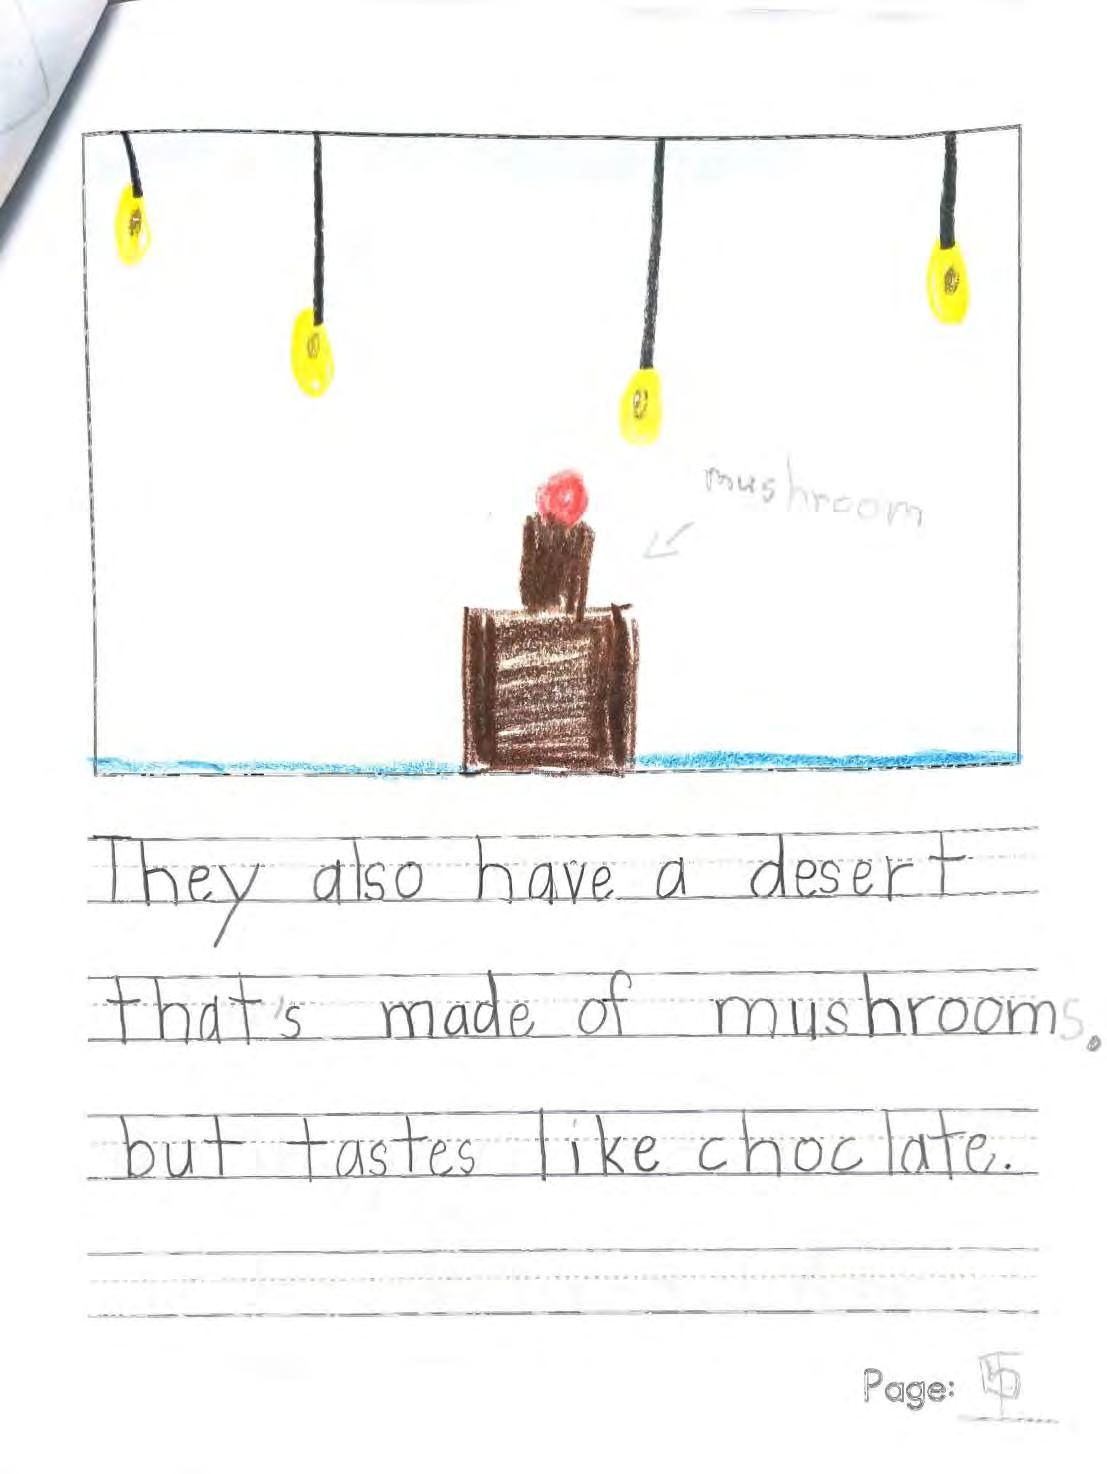 mushroom
They also have a desert
that's made of mushrooms.
but tastes like choclate.
Page: 5